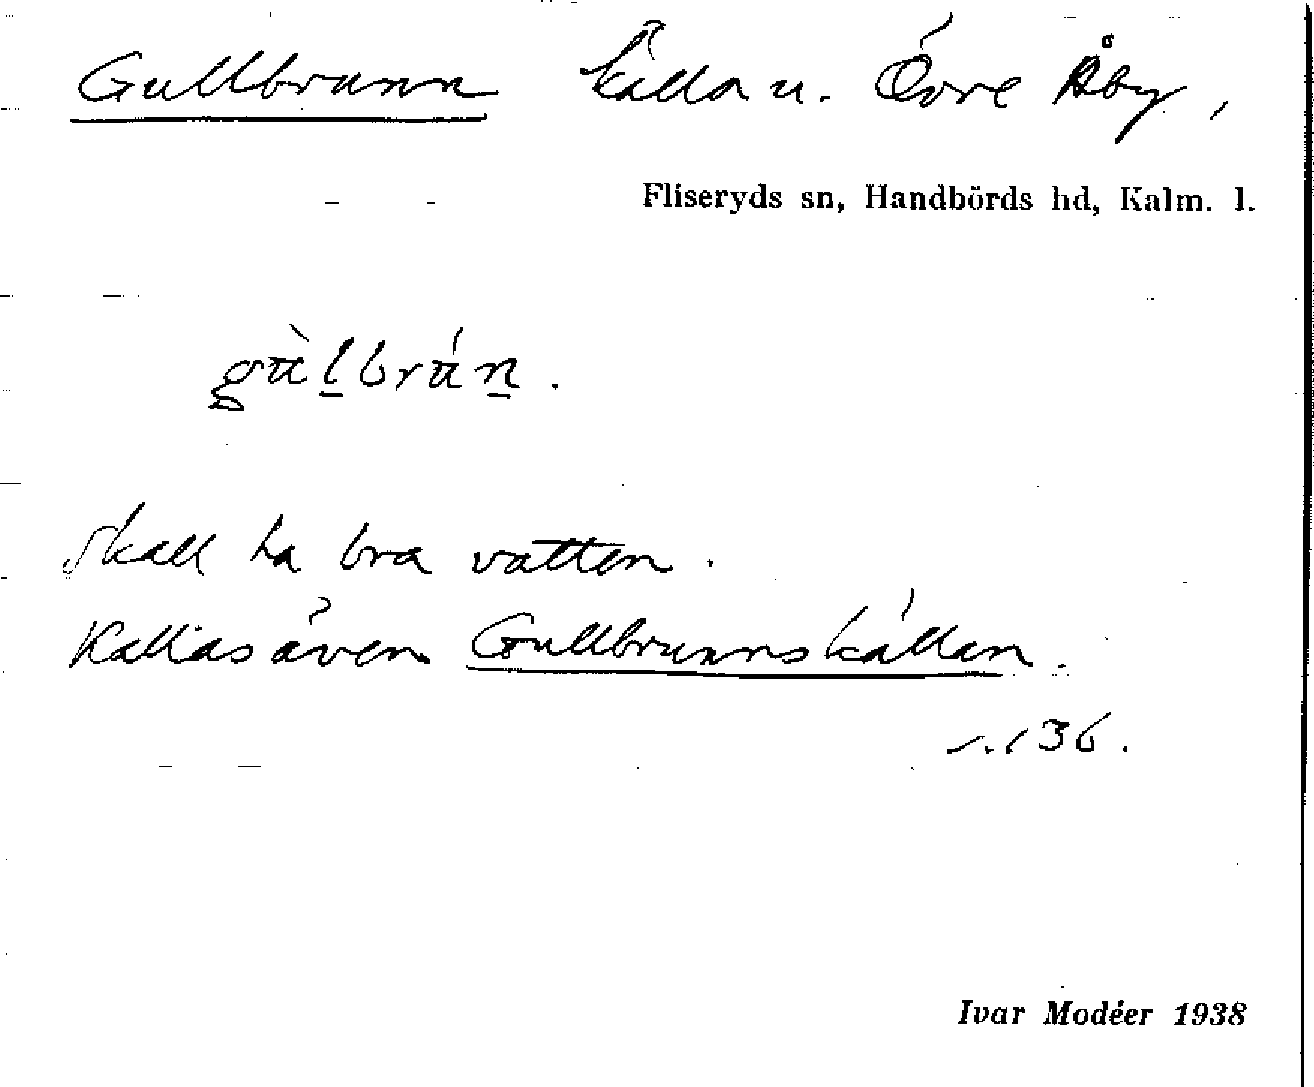 Gullbrunn källa u. Övre Åby,
Fliseryds sn, Handbörds hd, Kalm. l.
gùl̲brún̲.
Skall ha bra vatten.
Kallas även Gullbrunnskällan.
136.
Ivar Modéer 1938